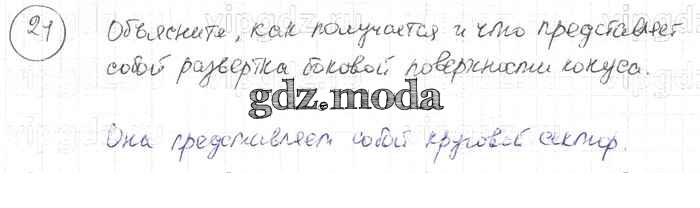 21 Объясните, как получается и что представляет
собой развертка боковой поверхности конуса.
gdz.moda
Она представляет собой круговой сектор.